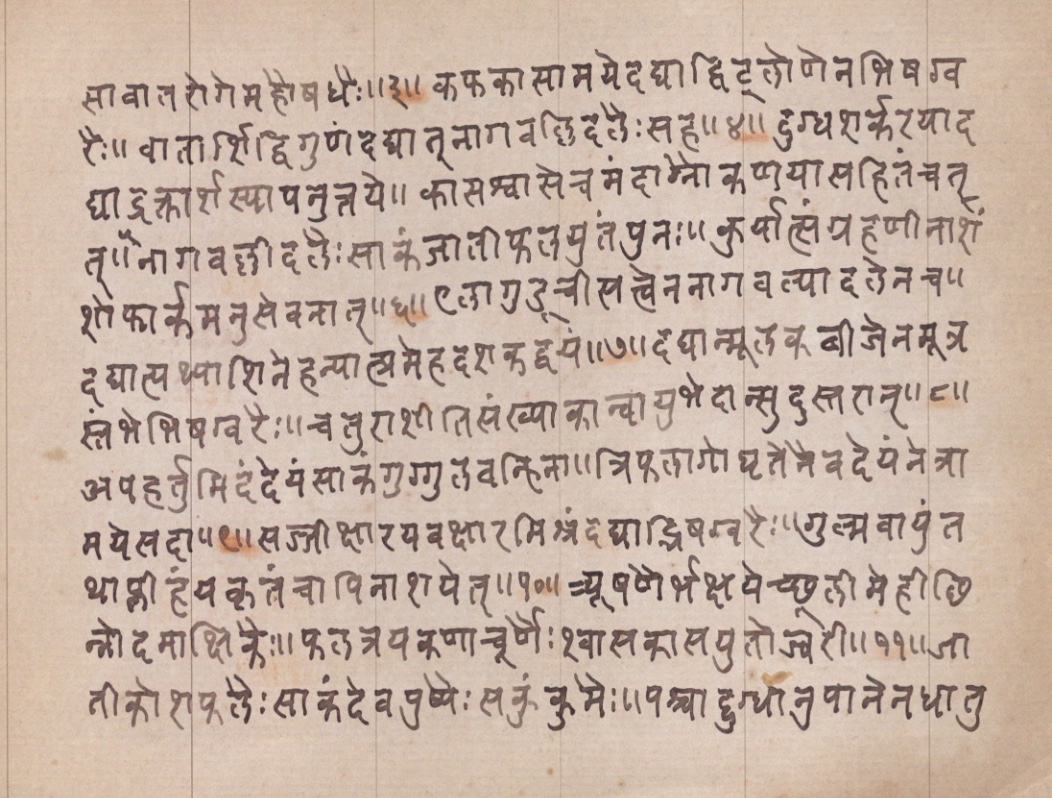 सावातरोगेमहौषधैः॥३॥ कफकासामयेदद्याद्विट्लोणेनभिषग्व
रैः॥ वातार्शिद्विगुणंदद्यात्नागवल्लिदलैःसह॥४॥ दुग्धशर्करयाद
द्याद्रक्तार्शस्यापनुत्तये॥ कासश्वासेचमंदाग्नौकणयासहितंचतत्
त्॥५॥नागवल्लीदलैःसाकंजातीफलयुतंपुनः॥ कुर्यात्संग्रहणीनाशं
शोफार्कमनुसेवनात्॥६॥ एलागुडूचीसत्त्वेननागवल्यादलेनच॥
दद्यात्पथ्याशिनेहन्यात्प्रमेहदशकद्वयं॥७॥ दद्यान्मूलकबीजेनमूत्र
स्तंभेभिषग्वरैः॥ चतुराशीतिसंख्याकान्वायुभेदान्सुदुस्तरान्॥८॥
अपहर्तुमिदंदेयंसाकंगुग्गुलवन्हिना॥ त्रिफलागोघृतेनैवदेयंनेत्रा
मयेसदा॥९॥ सज्जीक्षारयवक्षारमिश्रंदद्याद्भिषग्वरैः॥ गुल्मवायुंत
थाप्लीहंयकृतंचापिनाशयेत्॥१०॥ त्र्यूषणैर्भक्षयेच्छूलीमेहीछि
न्नोदमाक्षिकैः॥ फलत्रयकणाचूर्णैःश्वासकासयुतोज्वरी॥११॥ जा
तीकोशफलैःसाकंदेवपुष्पैःसकुंकुमैः॥ पश्चाद्दुग्धानुपानेनधातु